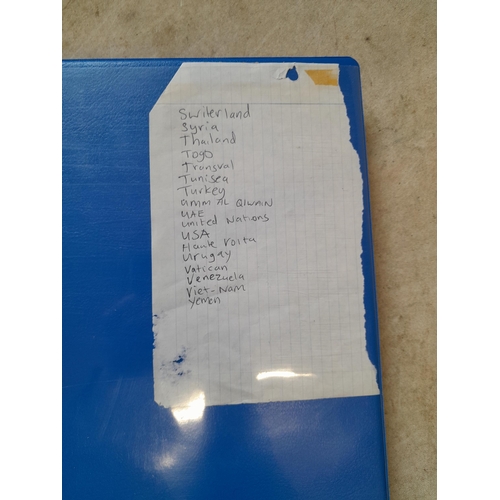 Switerland
Syria
Thailand
Togo
Transval
Tunisea
Turkey
Umm AL QIWAIN
UAE
United Nations
USA
Haute Volta
Uruguay
Vatican
Venezuela
Viet-Nam
Yemen